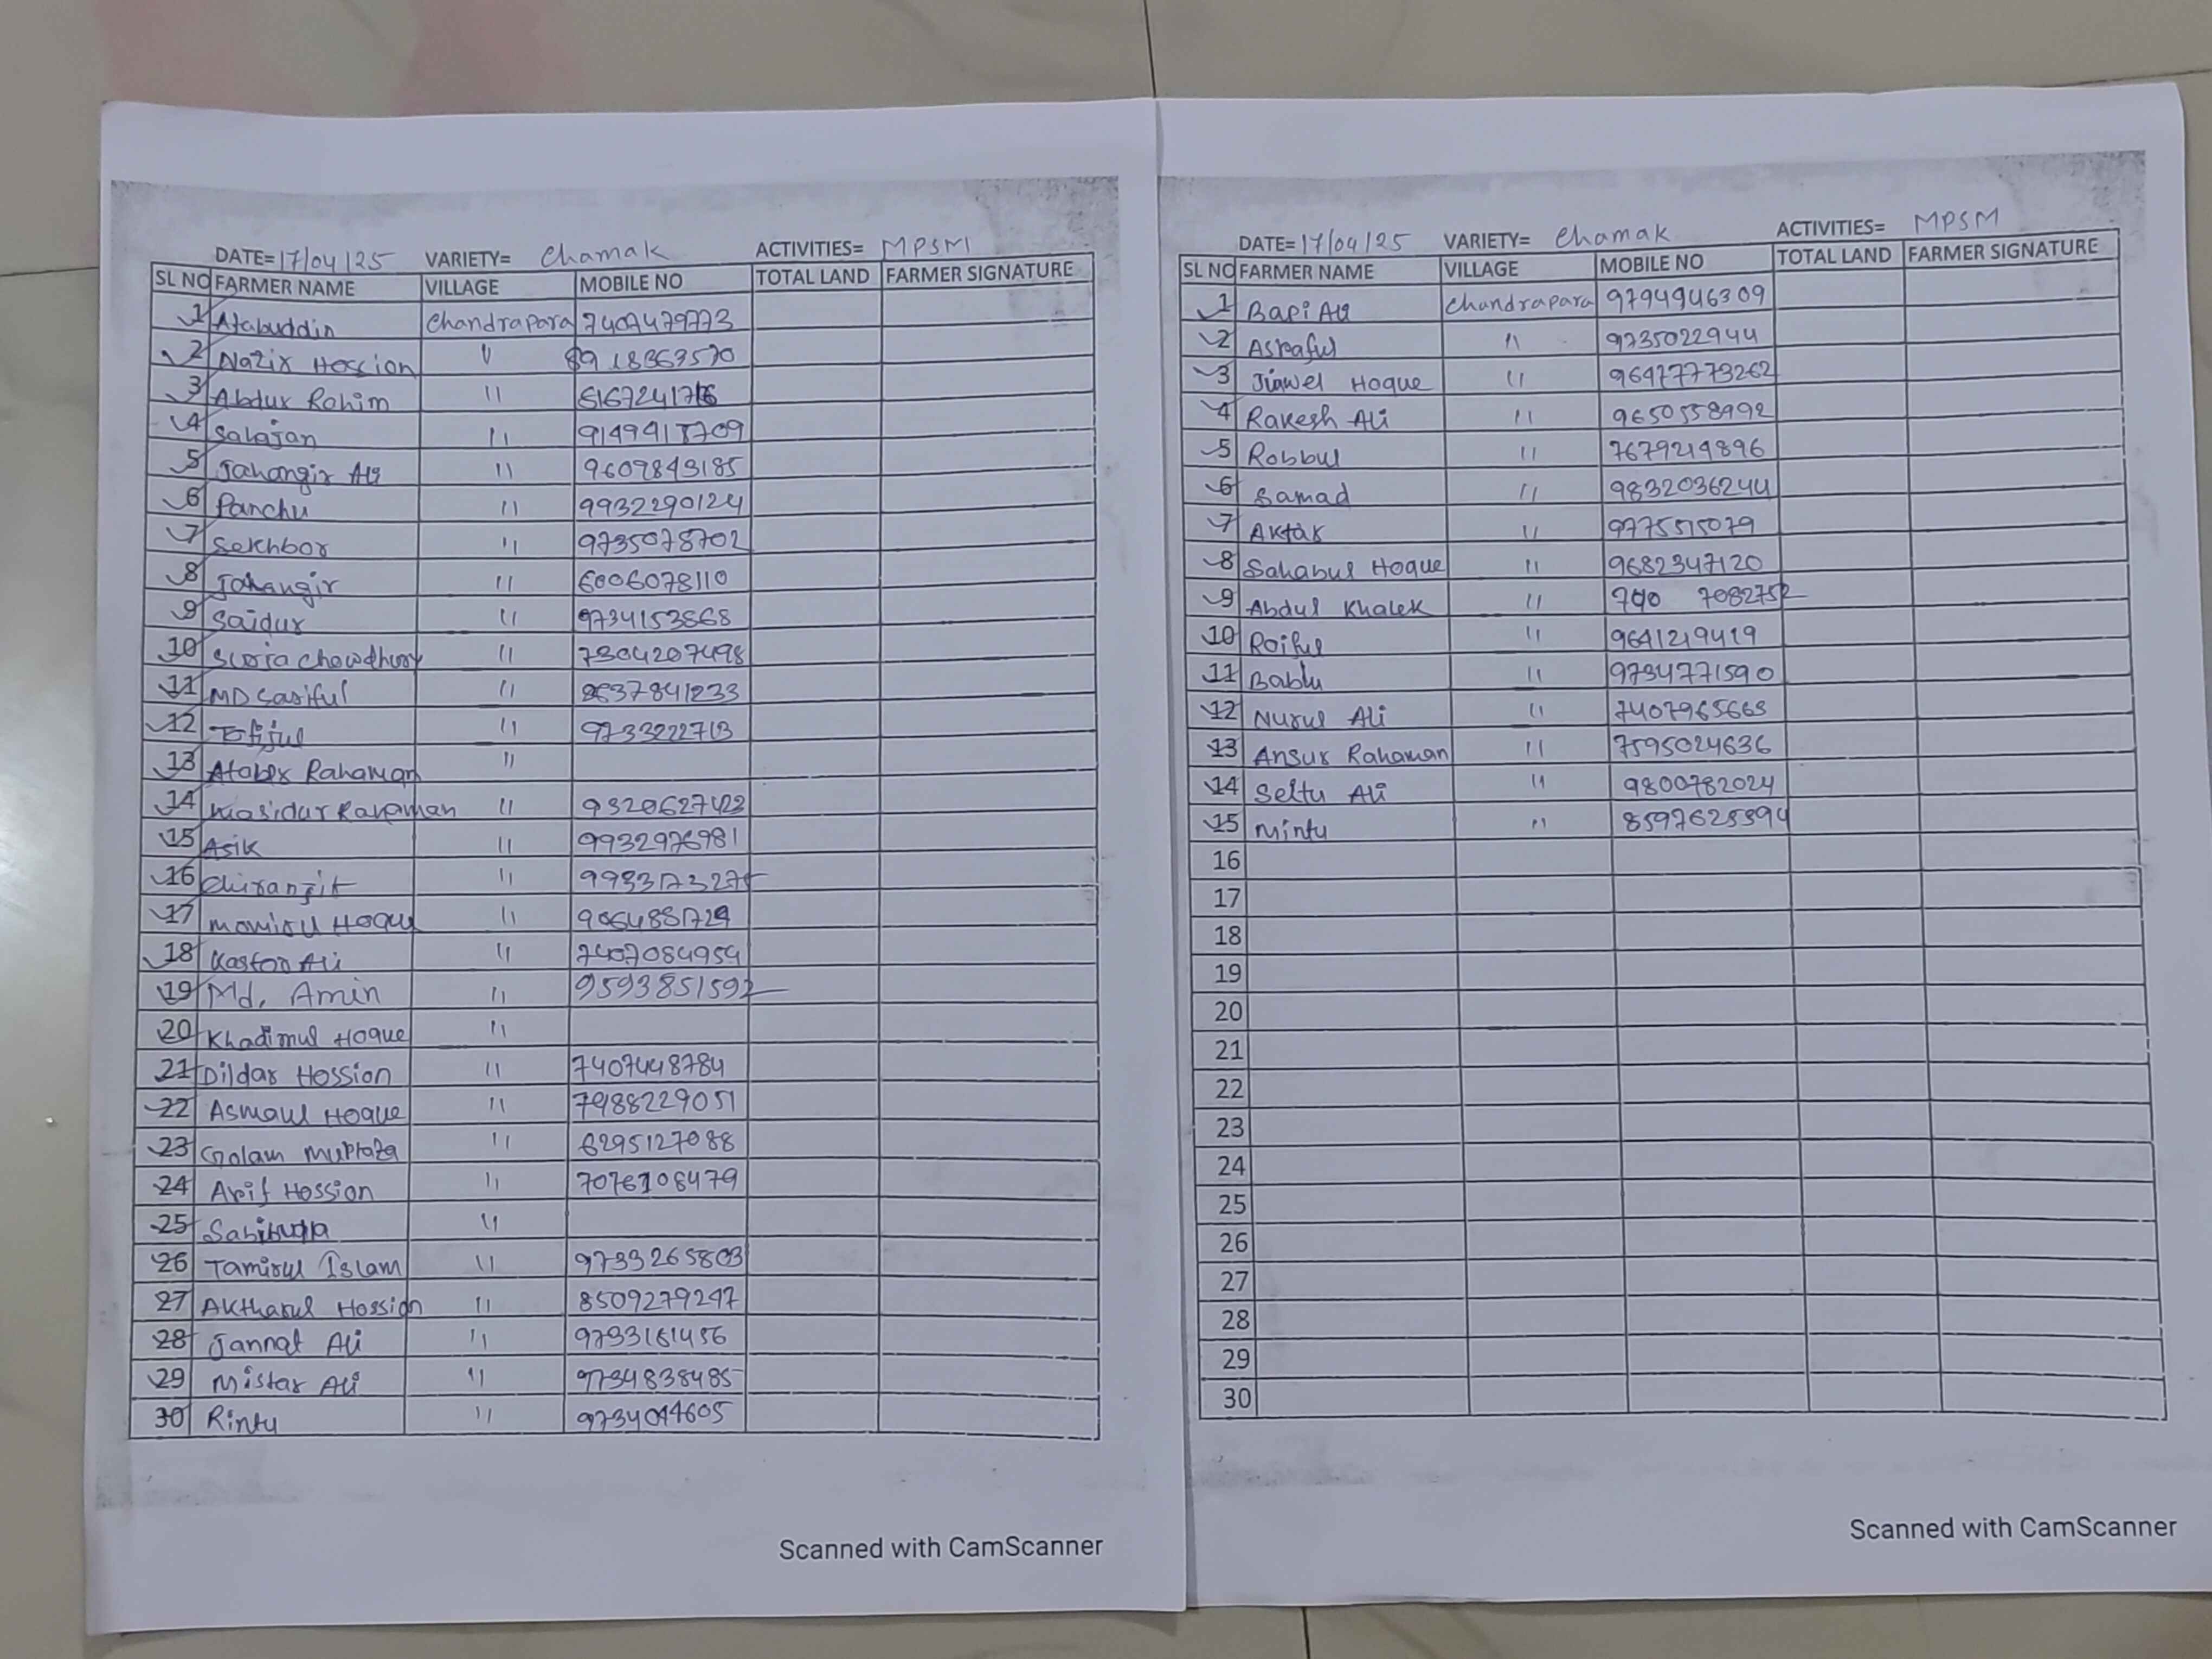 DATE= 17/04/25 VARIETY= Chamak ACTIVITIES= MPSM
SL NO FARMER NAME VILLAGE MOBILE NO TOTAL LAND FARMER SIGNATURE
1 Atabuddin Chandrapara 7407479773
2 Nazir Hossion 11 8918363570
3 Abdur Rohim 11
4 Salajan 11 9149418709
5 Jahangir Ali 11 9609843185
6 Panchu 11 9932290124
7 Sekhbor 11 9735078702
8 Jahangir 11 6006078110
9 Saidur 11 9734153868
10 Suroja Chowdhury 11 7304207498
11 MD Sariful 11 8637841233
12 Tofijul 11 9733222713
13 Ataber Rahaman 11
14 Rahaman 11 9320627423
15 Asik 11 9932976981
16 Chiranjit 11 9933173275
17 Momirul Hoque 11
18 Kastor Ali 11 7407084954
19 Md. Amin 11 9593851592
20 Khadimul Hoque 11
21 Dildar Hossion 11 7407448784
22 Asmaul Hoque 11
23 Golam Murtoza 11 6295127088
24 Arif Hossion 11 7076108479
25 11
26 Tamirul Islam 11 9733265803
27 Aktharul Hossion 11 8509279247
28 Jannat Ali 11 9733161456
29 Mistar Ali 11 9734838485
30 Rintu 11 9734044605
Scanned with CamScanner
DATE= 17/04/25 VARIETY= Chamak ACTIVITIES= MPSM
SL NO FARMER NAME VILLAGE MOBILE NO TOTAL LAND FARMER SIGNATURE
1 Bapi Ali Chandrapara 9794946309
2 Asraful 11 9735022944
3 Jiawel Hoque 11 96477773262
4 Rakesh Ali 11 9650558992
5 Robbul 11 7679219896
6 Samad 11 9832036244
7 Aktar 11 9775515079
8 Sahabul Hoque 11 9682347120
9 Abdul Khalek 11 7082752
10 Roiful 11 9641219419
11 Bablu 11 9734771590
12 Nurul Ali 11 7407965665
13 Ansur Rahaman 11 7595024636
14 Seltu Ali 11 9800782024
15 Mintu 11 8597625594
16
17
18
19
20
21
22
23
24
25
26
27
28
29
30
Scanned with CamScanner